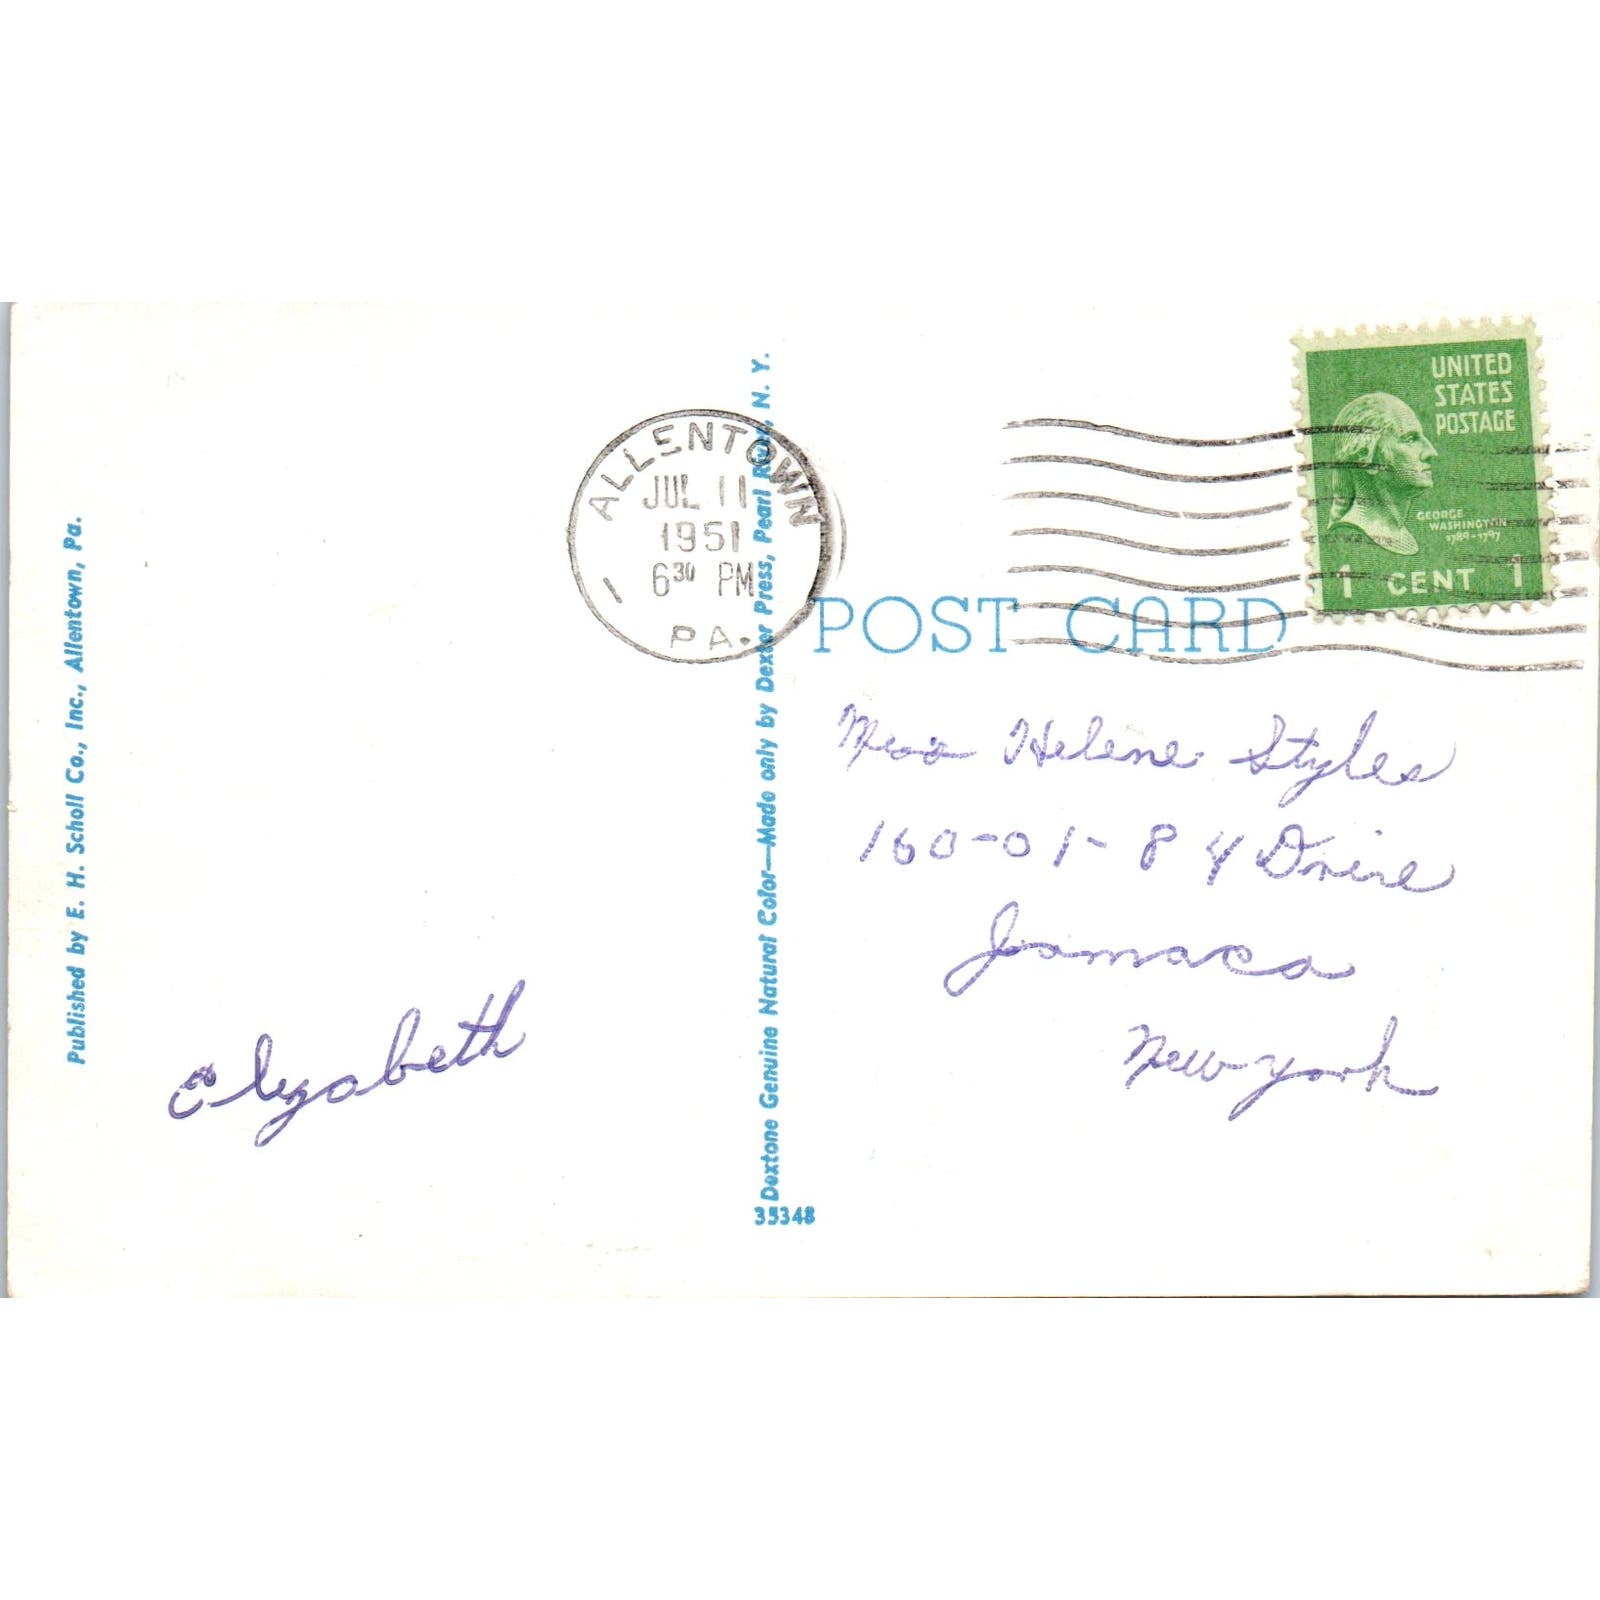 Published by E. H. Scholl Co., Inc., Allentown, Pa.
Elizabeth
ALLENTOWN
JUL 11
1951
6 30 PM
1
PA.
Dextone Genuine Natural Color—Made only by Dexter Press, Pearl River, N. Y.
35348
UNITED
STATES
POSTAGE
GEORGE
WASHINGTON
1789-1797
1 CENT 1
POST CARD
Miss Helene Styles
160-01-84 Drive
Jamaca
New York